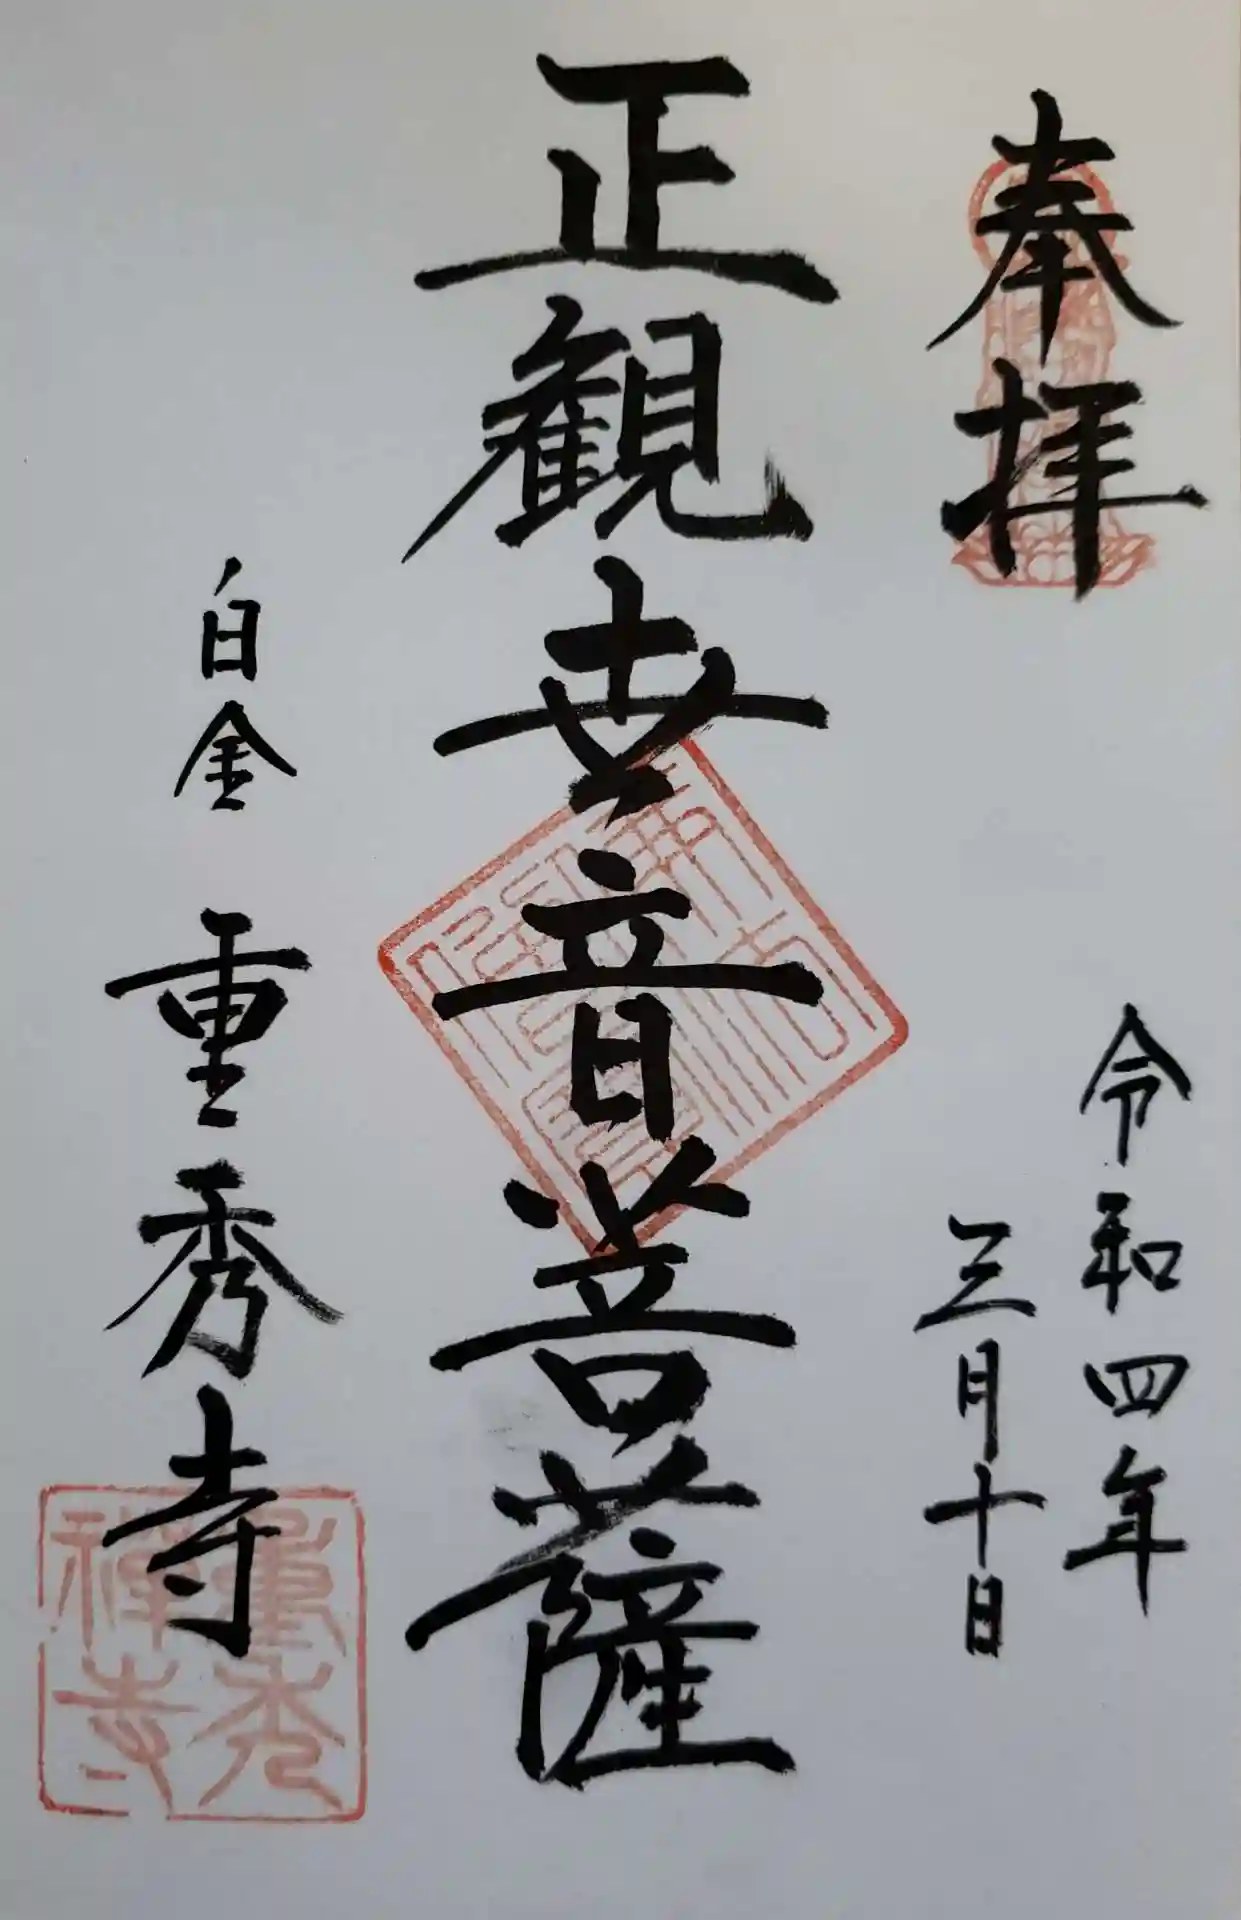 奉拝
令和四年
三月十日
正観世音菩薩
白金 重秀寺
重秀
禅寺